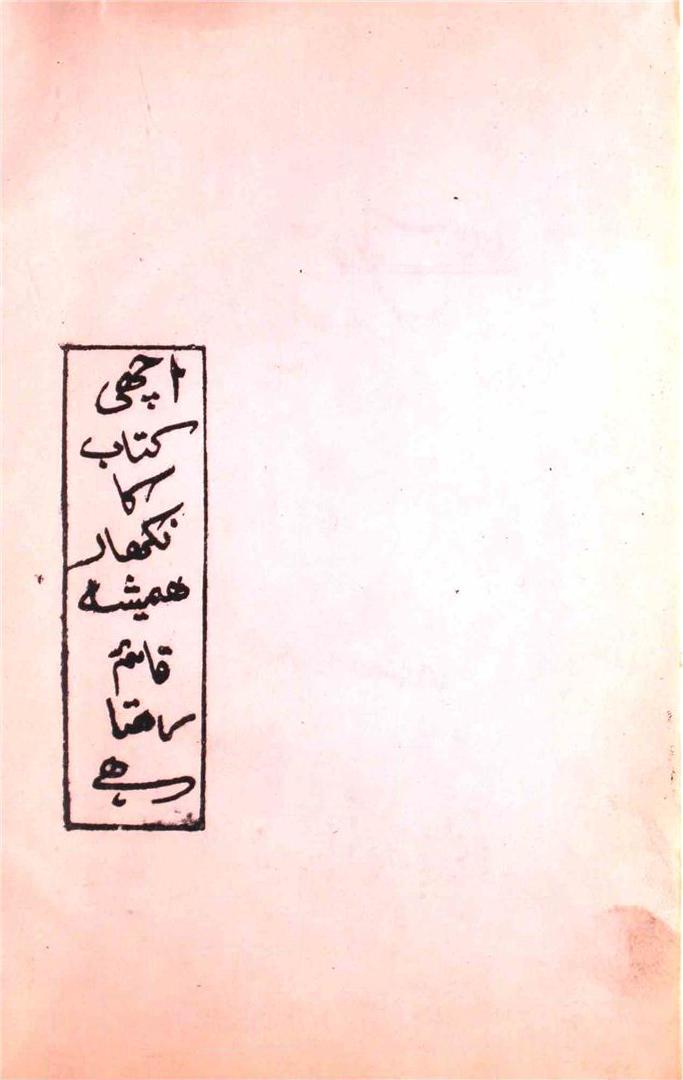 اچھی
کتاب
کا
نکھار
ہمیشہ
قائم
رہتا
ہے